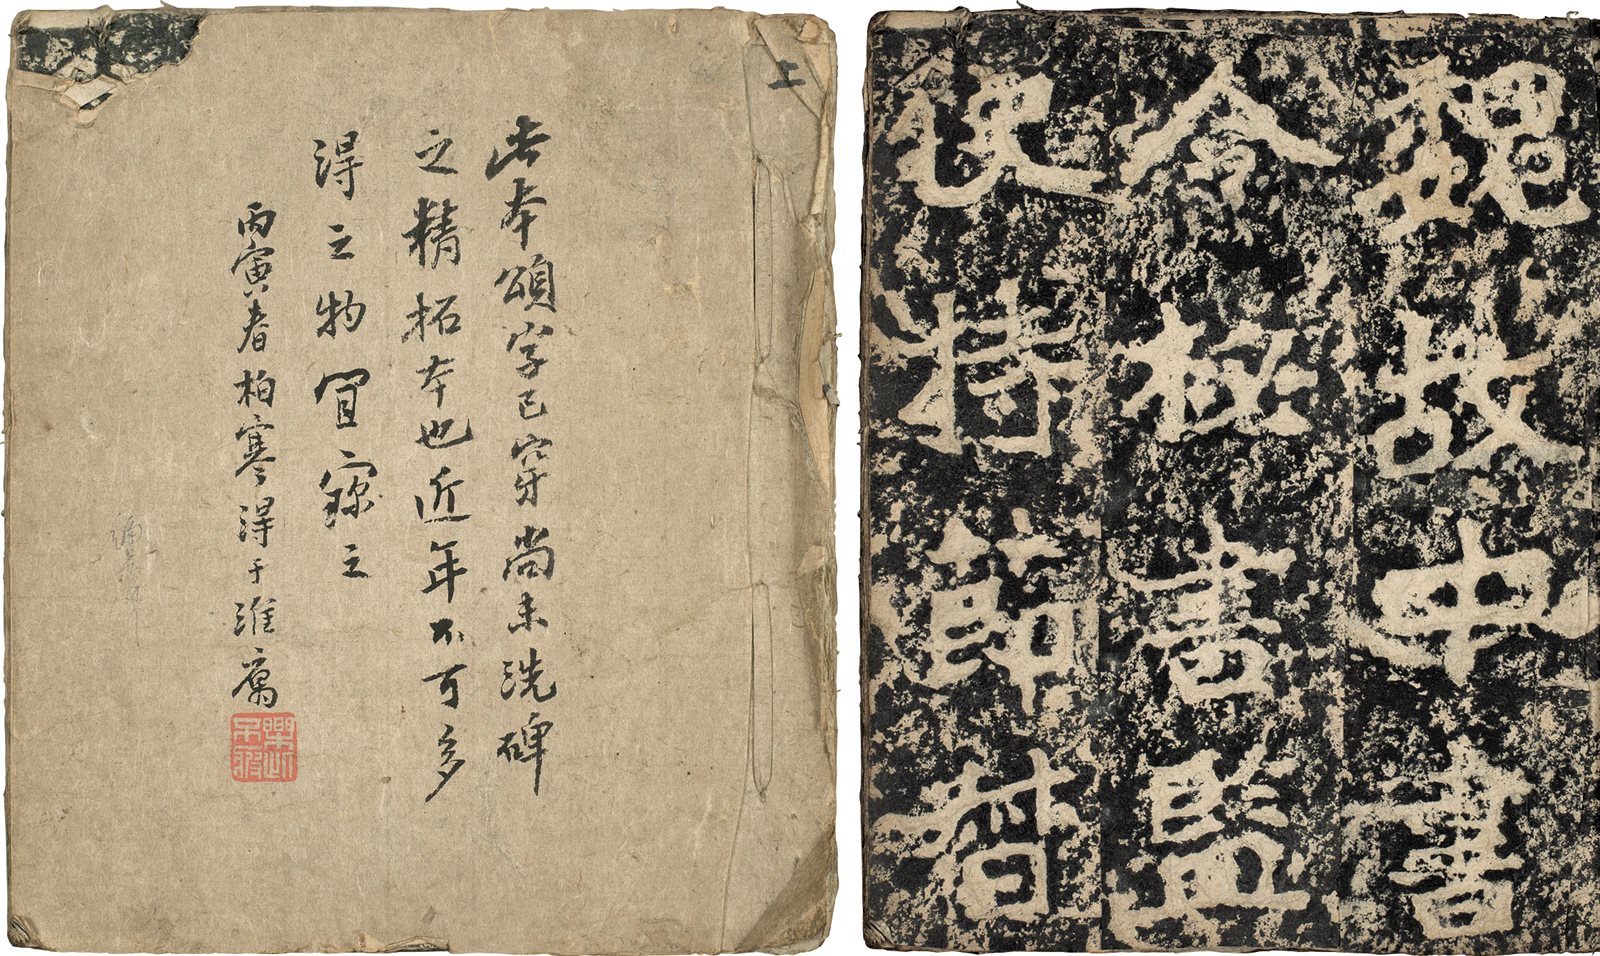 上
此本頌字已穿尚未洗碑
之精拓本也近年不可多
得之物宜寳之
丙寅春柏寒得于淮寓
樂此不疲
魏故中書
令秘書監
使持節督